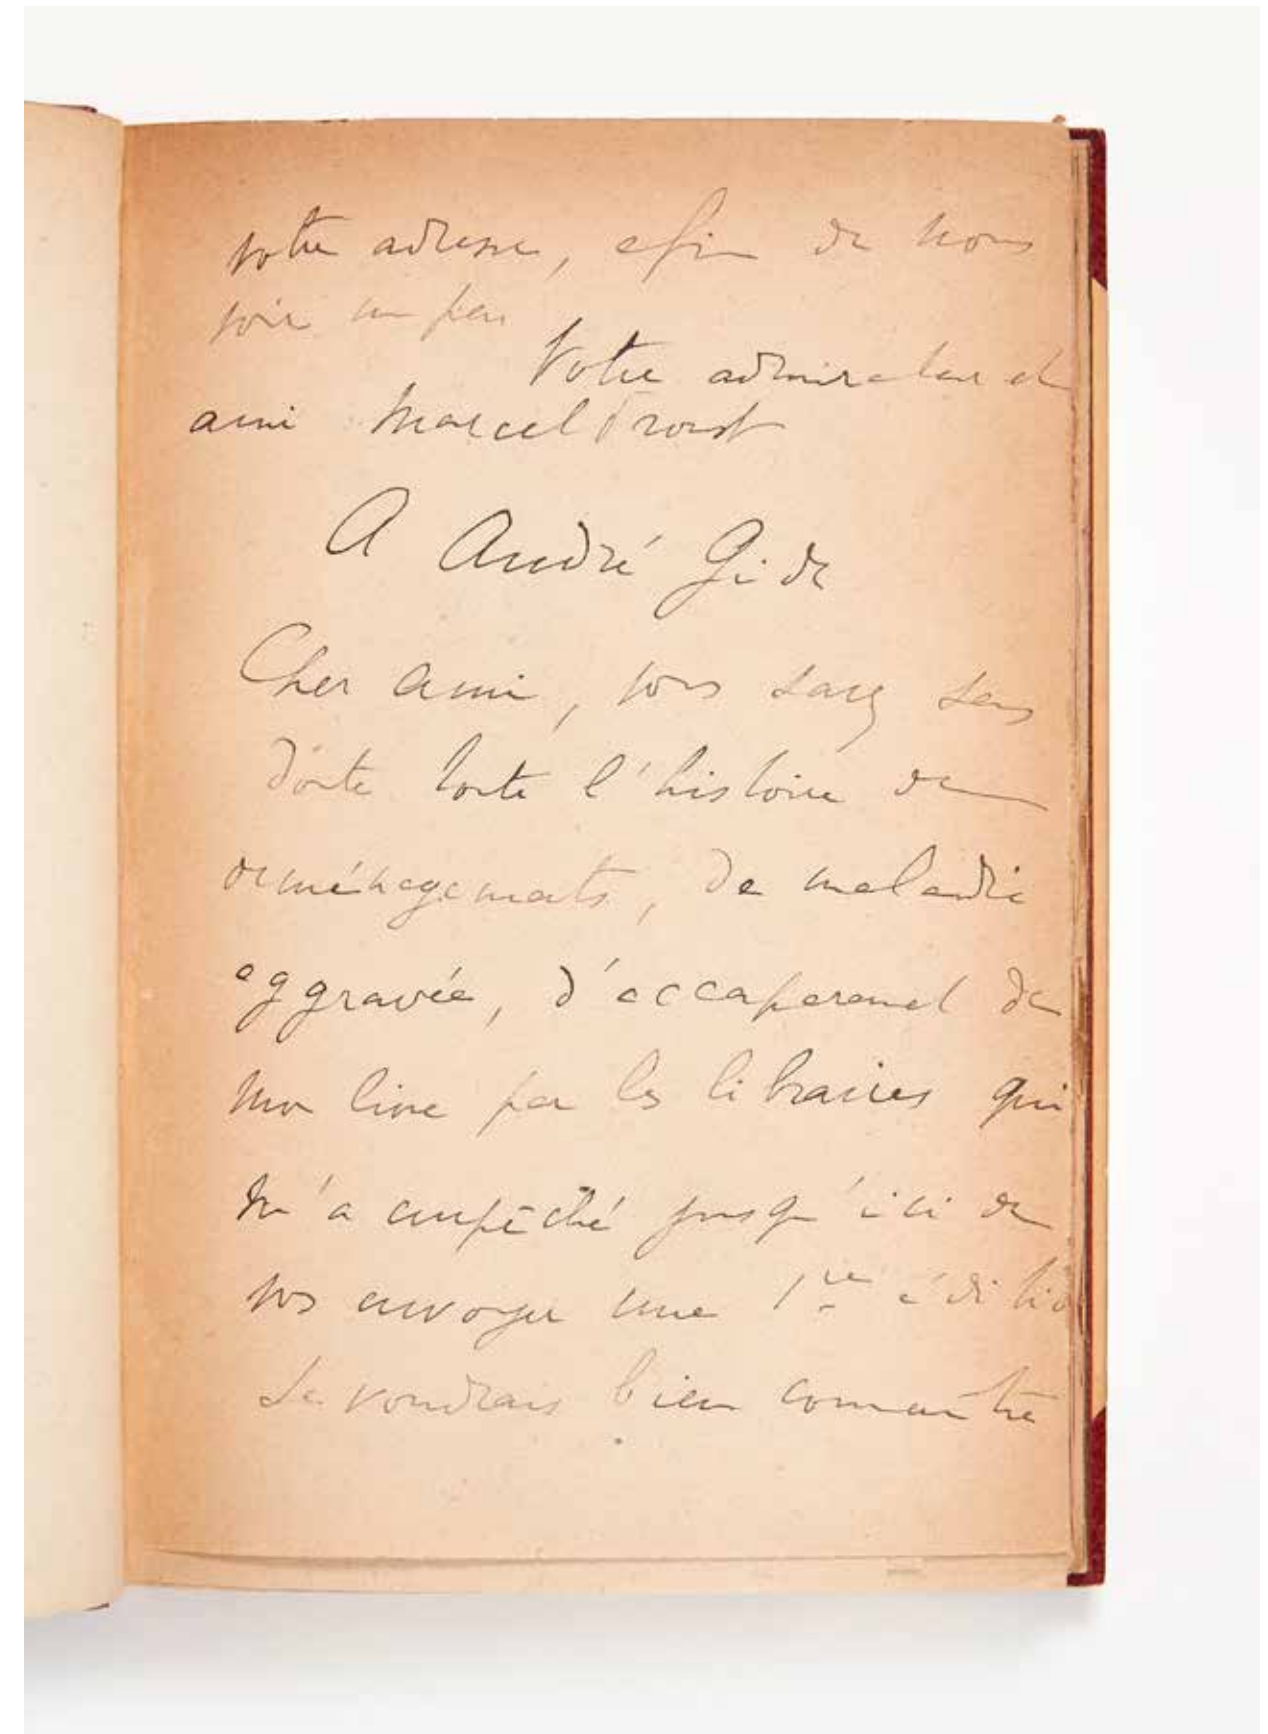 votre adresse, afin de nous
voir un peu
Votre admirateur et
ami Marcel Proust
A André Gide
Cher ami, vous savez sans
doute toute l'histoire de
déménagements, de maladie
aggravée, d'accaparement de
mon livre par les libraires qui
m'a empêché jusqu'ici de
vous envoyer une 1re édition
Je voudrais bien connaître